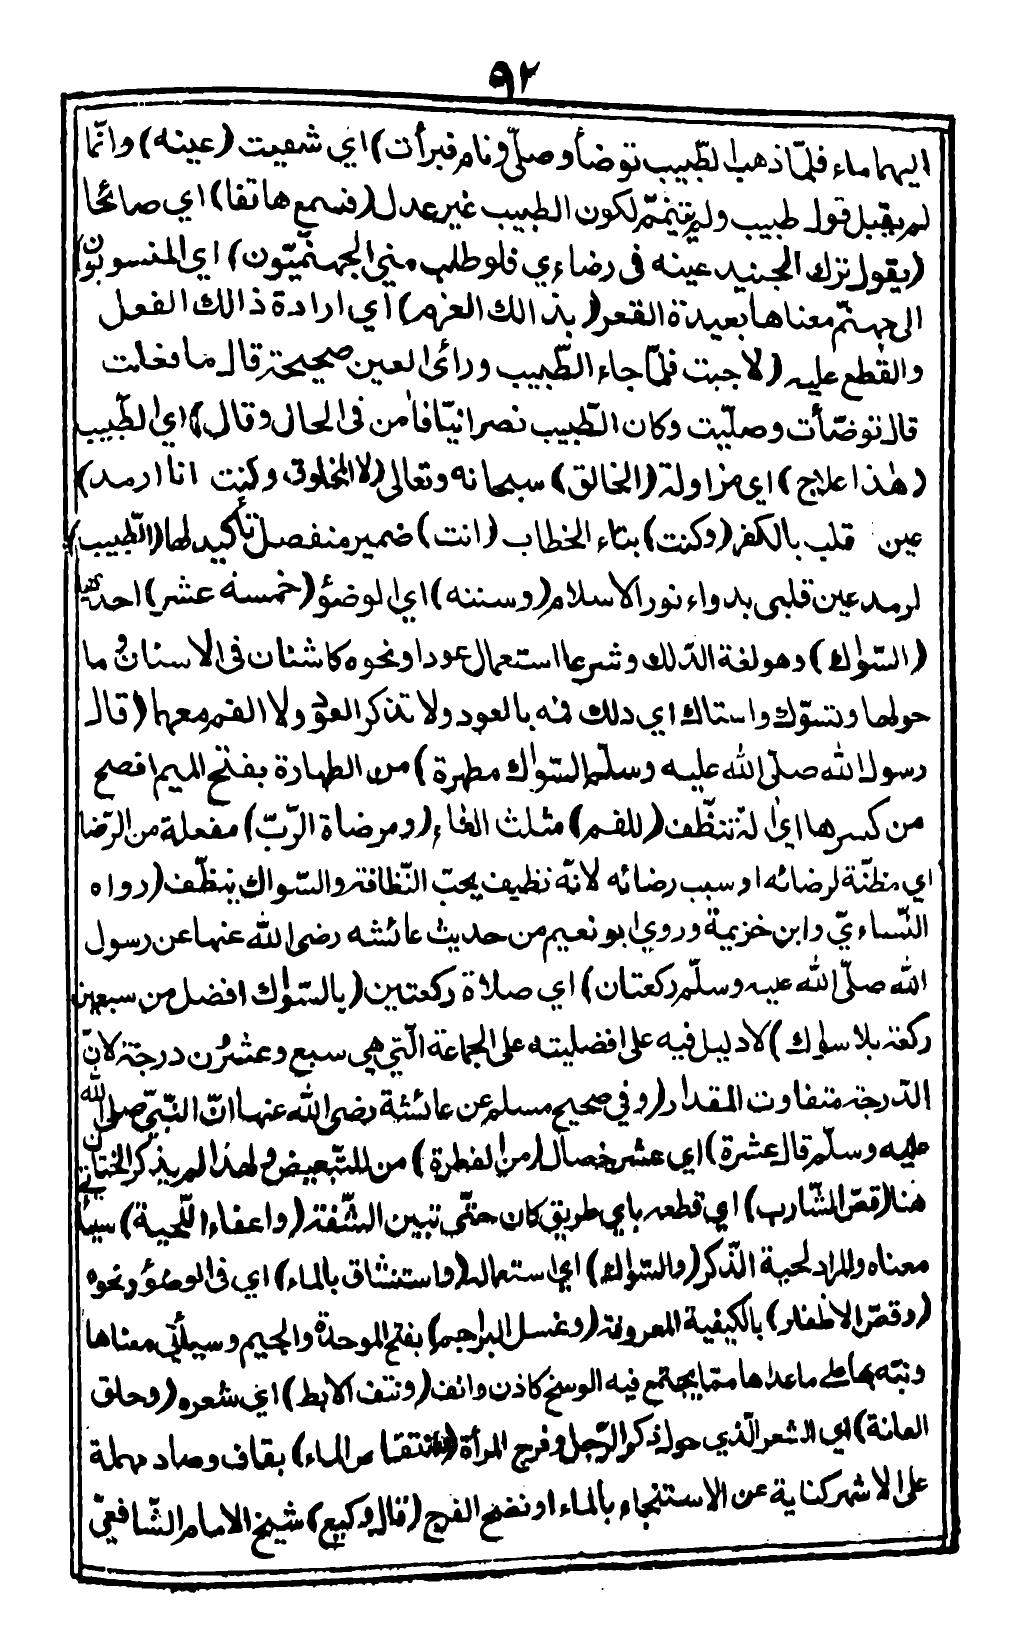 ٩٢
اليهما ماء فلمّا ذهب الطّبيب توضأ وصلّى ونام فبرأت) اي شفيت (عينه) وانّما
لم يقبل قول طبيب ولم يتيمّم لكون الطبيب غير عدل (فسمع هاتفا) اي صائحا
(يقول ترك الجنيد عينه فى رضاءي فلو طلب مني الجهنّميّون) اي المنسوبون
الى جهنّم معناها بعيدة القعر (بذالك العزم) اي ارادة ذالك الفعل
والقطع عليه (لاجبت فلمّا جاء الطّبيب ورائ العين صحيحة قال ما فعلت
قال توضّأت وصلّيت وكان الطّبيب نصرانيّا فأمن فى الحال وقال) اي الطّبيب
(هٰذا علاج) اي مزاولة (الخالق) سبحانه وتعالى (لا المخلوق وكنت انا ارمد)
عين قلب بالكفر (وكنت) بتاء الخطاب (انت) ضمير منفصل تأكيد لها (الطّبيب)
لرمد عين قلبى بدواء نور الاسلام (وسننه) اي الوضوٴ (خمسنه عشر) احدها
(السّواك) وهو لغة الدّلك وشرعا استعمال عود او نحوه كاشنان فى الاسنان وما
حولها وتسوّك واستاك اي دلك فمه بالعود ولا تذكر العود ولا الفم معهما (قال
رسول الله صلّى الله عليه وسلّم السّواك مطهرة) من الطهارة بفتح الميم افصح
من كسرها اي اٰلة تنظّف (للفم) مثلث الفاء (ومرضاة الرّبّ) مفعلة من الرّضا
اي مظنّة لرضائه او سبب رضائه لانّه نظيف يحبّ النّظافة والسّواك ينظّف (رواه
النّساءيّ وابن خزيمة وروي ابو نعيم من حديث عائشه رضى الله عنها عن رسول
الله صلّى الله عيه وسلّم ركعتان) اي صلاة ركعتين (بالسّواك افضل من سبعين
ركعة بلا سواك) لا دليل فيه على افضليته على الجماعة الّتي هي سبع وعشرون درجة لانّ
الدّرجة متفاوت المقدار (وفي صحيح مسلم عن عائشة رضى الله عنها انّ النّبيّ صلى الله
عليه وسلّم قال عشرة) اي عشر خصال (من الفطرة) من للتّبعيض ولهذا لم يذكر الختان
هنا (قصّ الشّارب) اي قطعه باي طريق كان حتّى تبين الشّفة (واعفاء اللّحية) سيأتي
معناه والمراد لحية الذّكر (والسّواك) اي استعماله (واستنشاق بالماء) اي فى الوضوٴ ونحوه
(وقصّ الاظفار) بالكيفية المعروفة (وغسل البراجم) بفتح الموحدة والجيم وسيأتي معناها
ونبّه بها على ما عداها ممّا يجتمع فيه الوسخ كاذن وانف (ونتف الابط) اي شعره (وحلق
العانة) اي الشعر الّذي حول ذكر الرّجل وفرج المرأة (وانتقاص الماء) بقاف وصاد مهملة
على الاشهر كناية عن الاستنجاء بالماء او نضح الفرج (قال وكيع) شيخ الامام الشّافعيّ